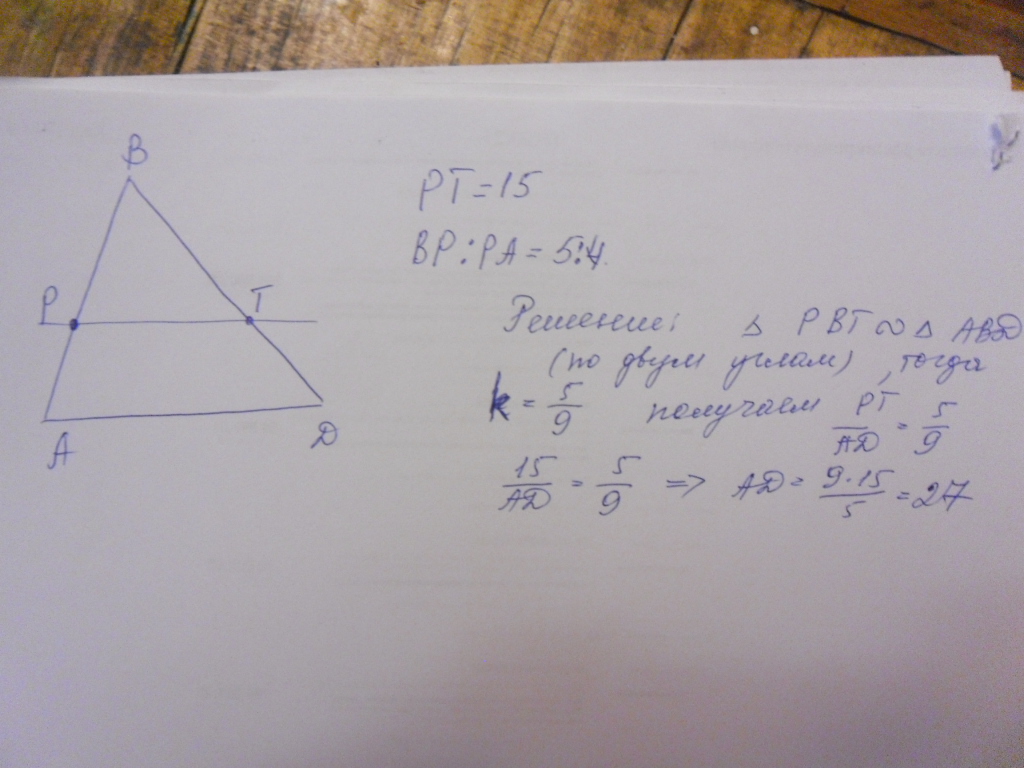 B
P
T
A
D
PT = 15
BP : PA = 5:4.
Решение: Δ PBT ∞ Δ ABD
(по двум углам), тогда
k = 5/9 получаем PT/AD = 5/9
15/AD = 5/9 => AD = 9·15/5 = 27